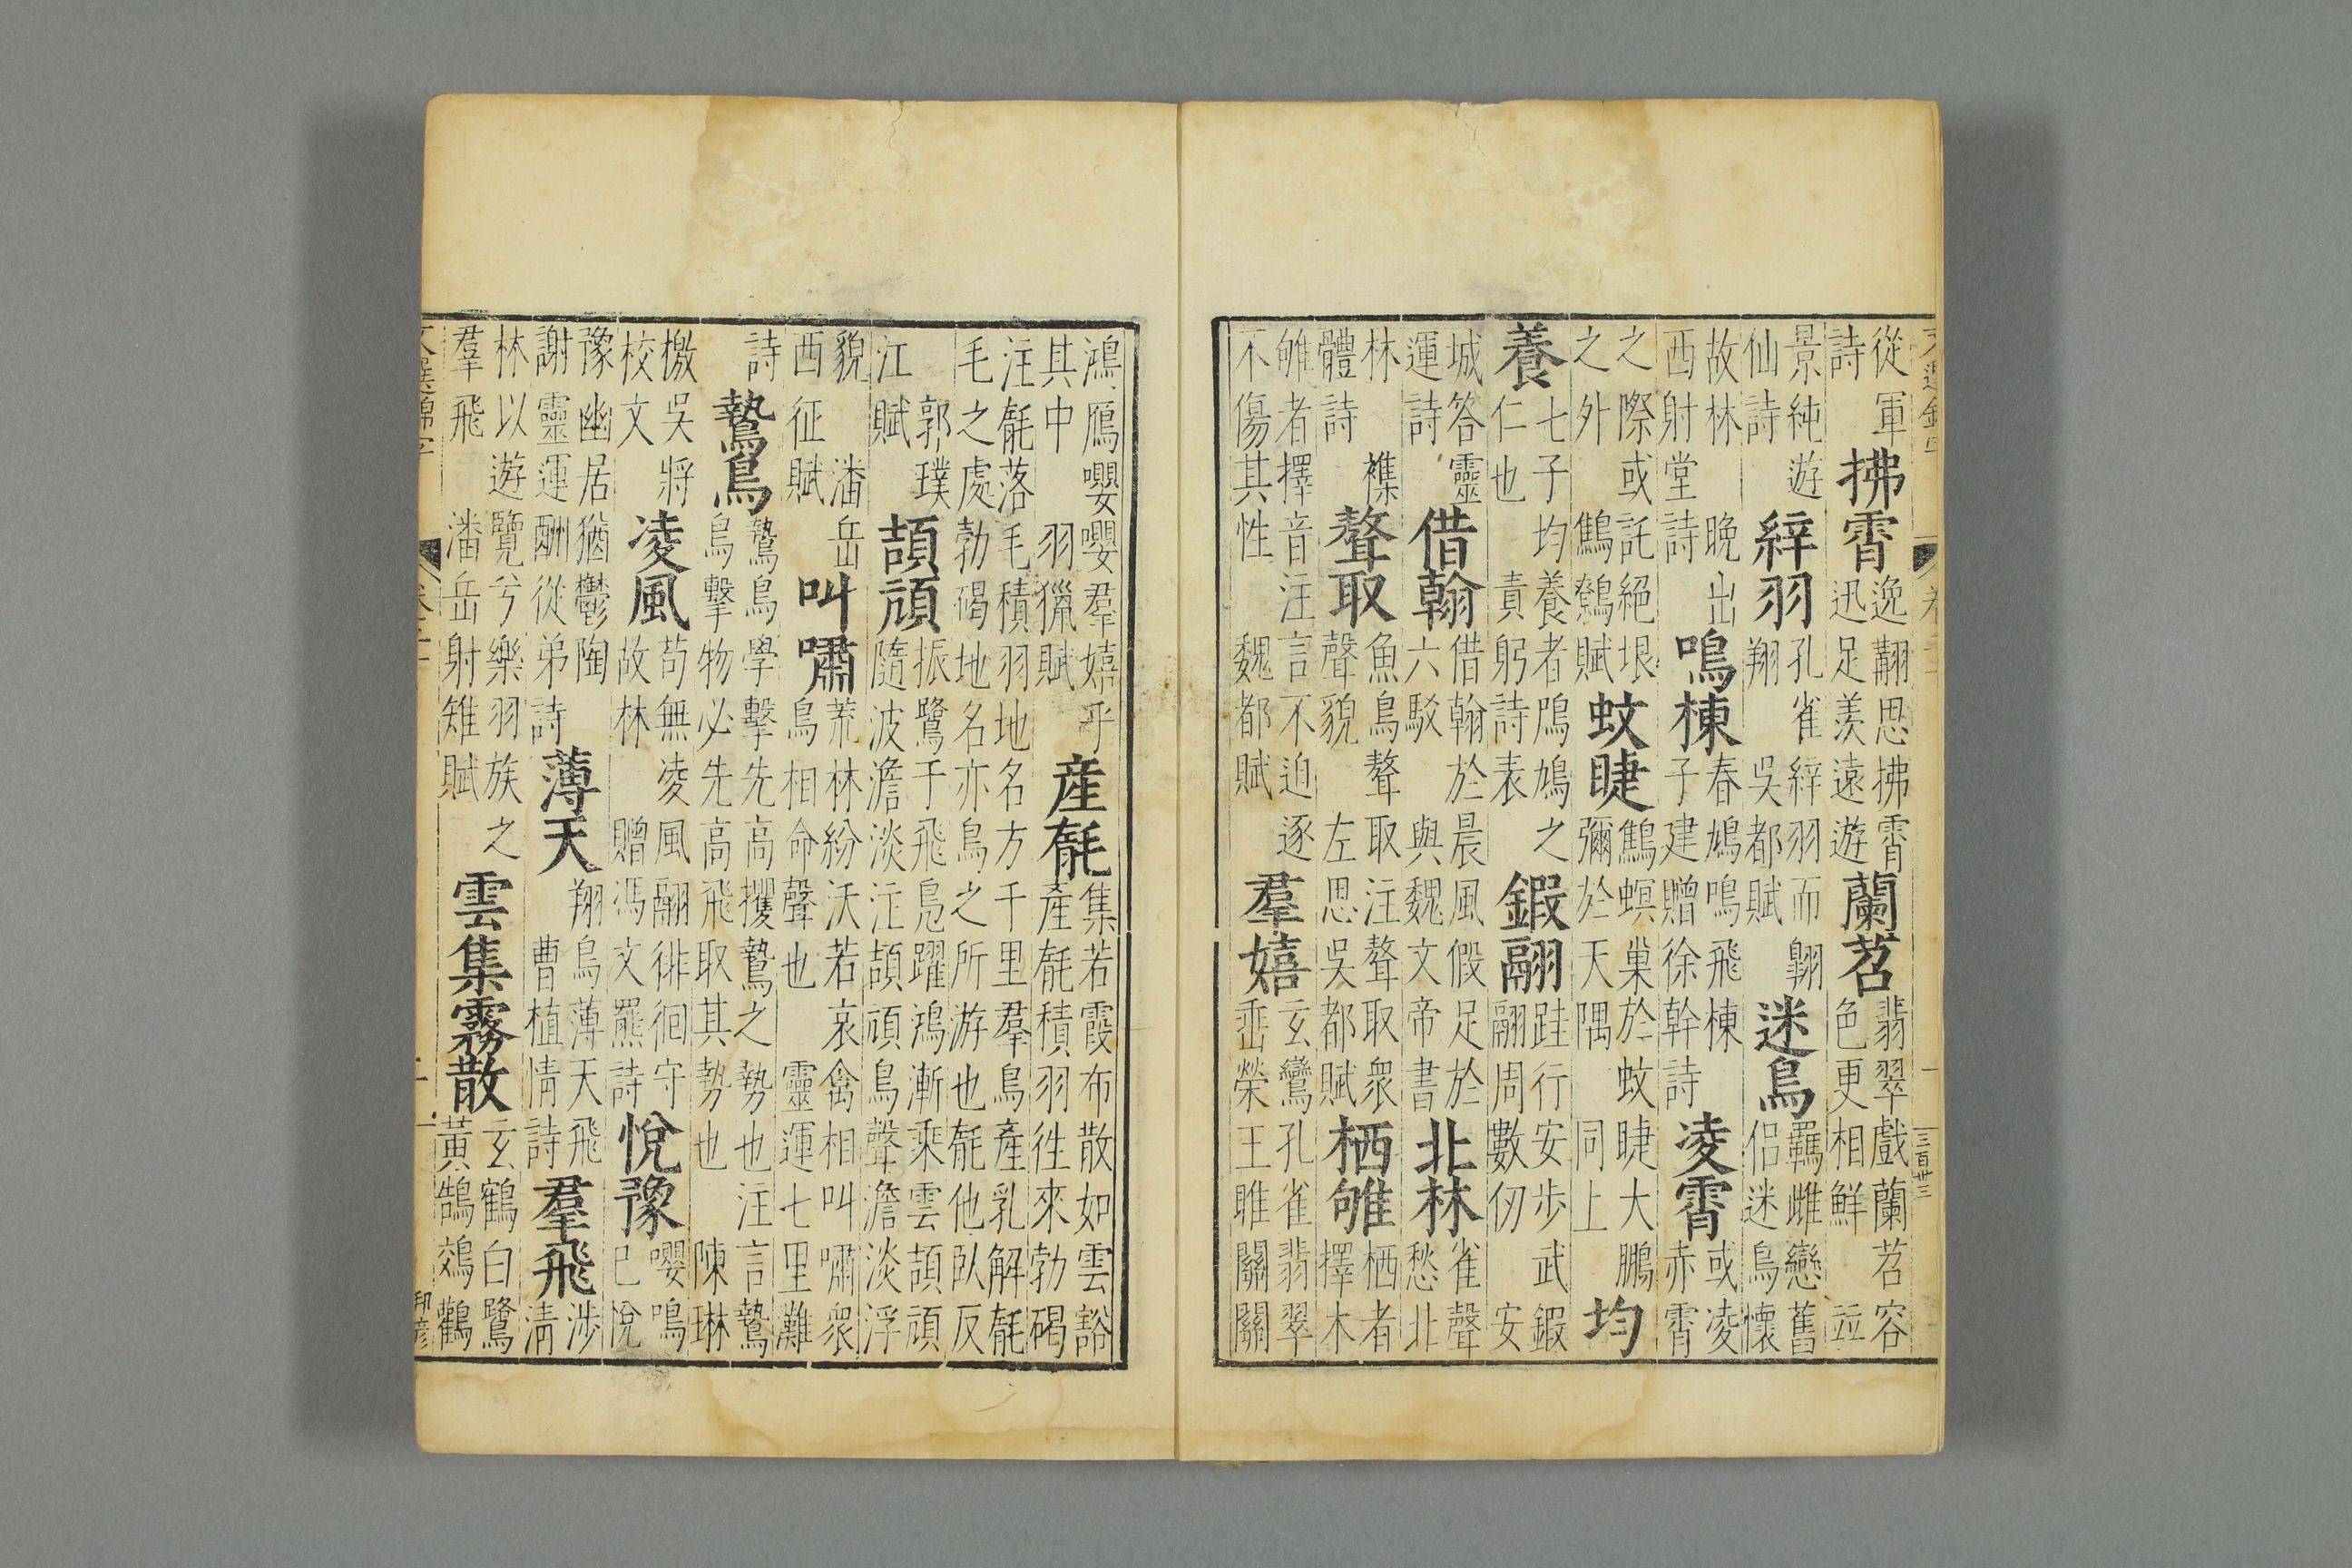 從軍詩 拂霄 逸翮思拂霄迅足羨遠遊 蘭苕 翡翠戲蘭苕容色更相鮮 並
景純遊仙詩 綷羽 孔雀綷羽而翱翔 吳都賦 迷鳥 羈雌戀舊侶迷鳥懷
故林 晚出西射堂詩 鳴棟 春鳩鳴飛棟 子建贈徐幹詩 凌霄 或凌赤霄
之際或託絕垠之外 鷦鷯賦 蚊睫 鷦螟巢於蚊睫大鵬彌於天隅 同上 均
養 七子均養者鳲鳩之仁也 責躬詩表 鍜翮 跬行安步武鍜翮周數仞 安
城答靈運詩 借翰 借翰於晨風假足於六駁 與魏文帝書 北林 雀聲愁北
林 襍體詩 聱取 魚鳥聱取注聱取衆聲貌 左思吳都賦 栖雊 栖者擇木
雊者擇音注言不迫逐不傷其性 魏都賦 羣嬉 玄鸞孔雀翡翠垂榮王雎關關
鴻鴈嚶嚶羣嬉乎其中 羽獵賦 産毻 集若霞布散如雲豁產毻積羽往來勃碣
注毻落毛積羽地名方千里羣鳥產乳解毻毛之處勃碣地名亦鳥之所游也毻他臥反
郭璞江賦 頡頏 振鷺于飛鳧躍鴻漸乘雲頡頏隨波澹淡注頡頏鳥聲澹淡浮
貌 潘岳西征賦 叫嘯 荒林紛沃若哀禽相叫嘯衆鳥相命聲也 靈運七里灘
詩 鷙鳥 鷙鳥學擊先高攫鷙之勢也注言鷙鳥擊物必先高飛取其勢也 陳琳
檄吳將校文 凌風 苟無凌風翮徘徊守故林 贈馮文羆詩 悅豫 嚶鳴已悅
豫幽居猶鬱陶 謝靈運酬從弟詩 薄天 翔鳥薄天飛 曹植情詩 羣飛 涉清
林以遊覽兮樂羽族之羣飛 潘岳射雉賦 雲集霧散 玄鶴白鷺黃鵠鵁鸛